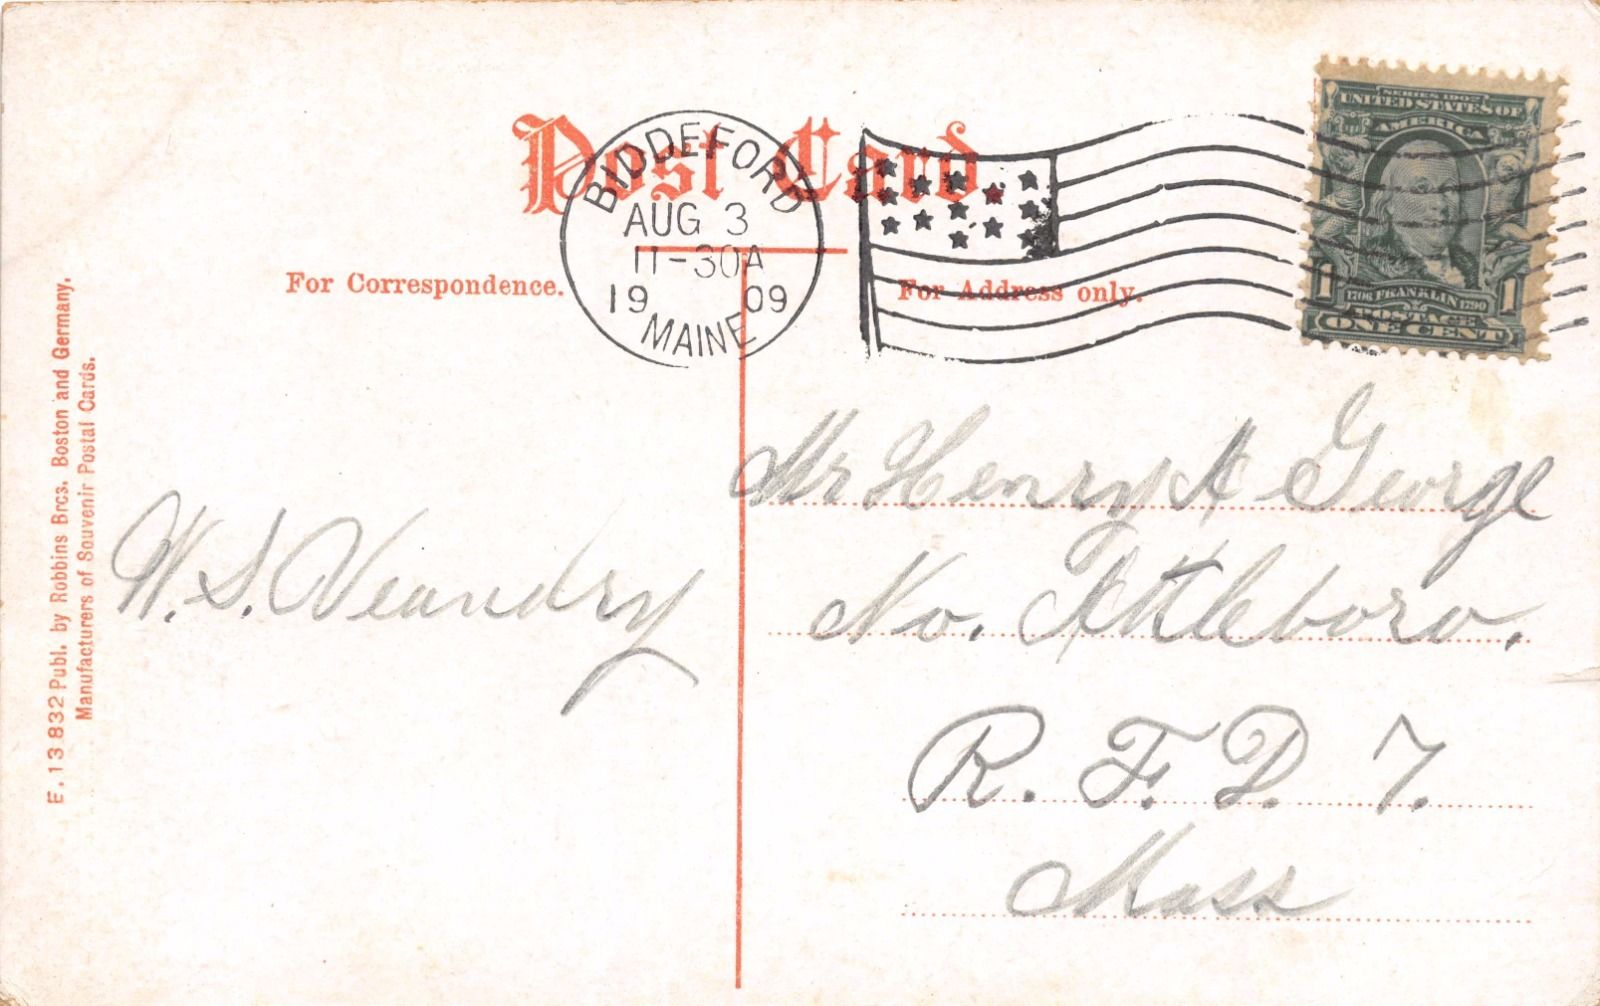 Post Card
BIDDEFORD
AUG 3
11-30A
19 09
MAINE
SERIES 1902
UNITED STATES OF
AMERICA
1 1
1706 FRANKLIN 1790
POSTAGE
ONE CENT
For Correspondence.
For Address only.
E. 13 832 Publ. by Robbins Bros. Boston and Germany,
Manufacturers of Souvenir Postal Cards.
W. S.
Mr Henry A George
No. Attleboro.
R. F. D. 7.
Mass